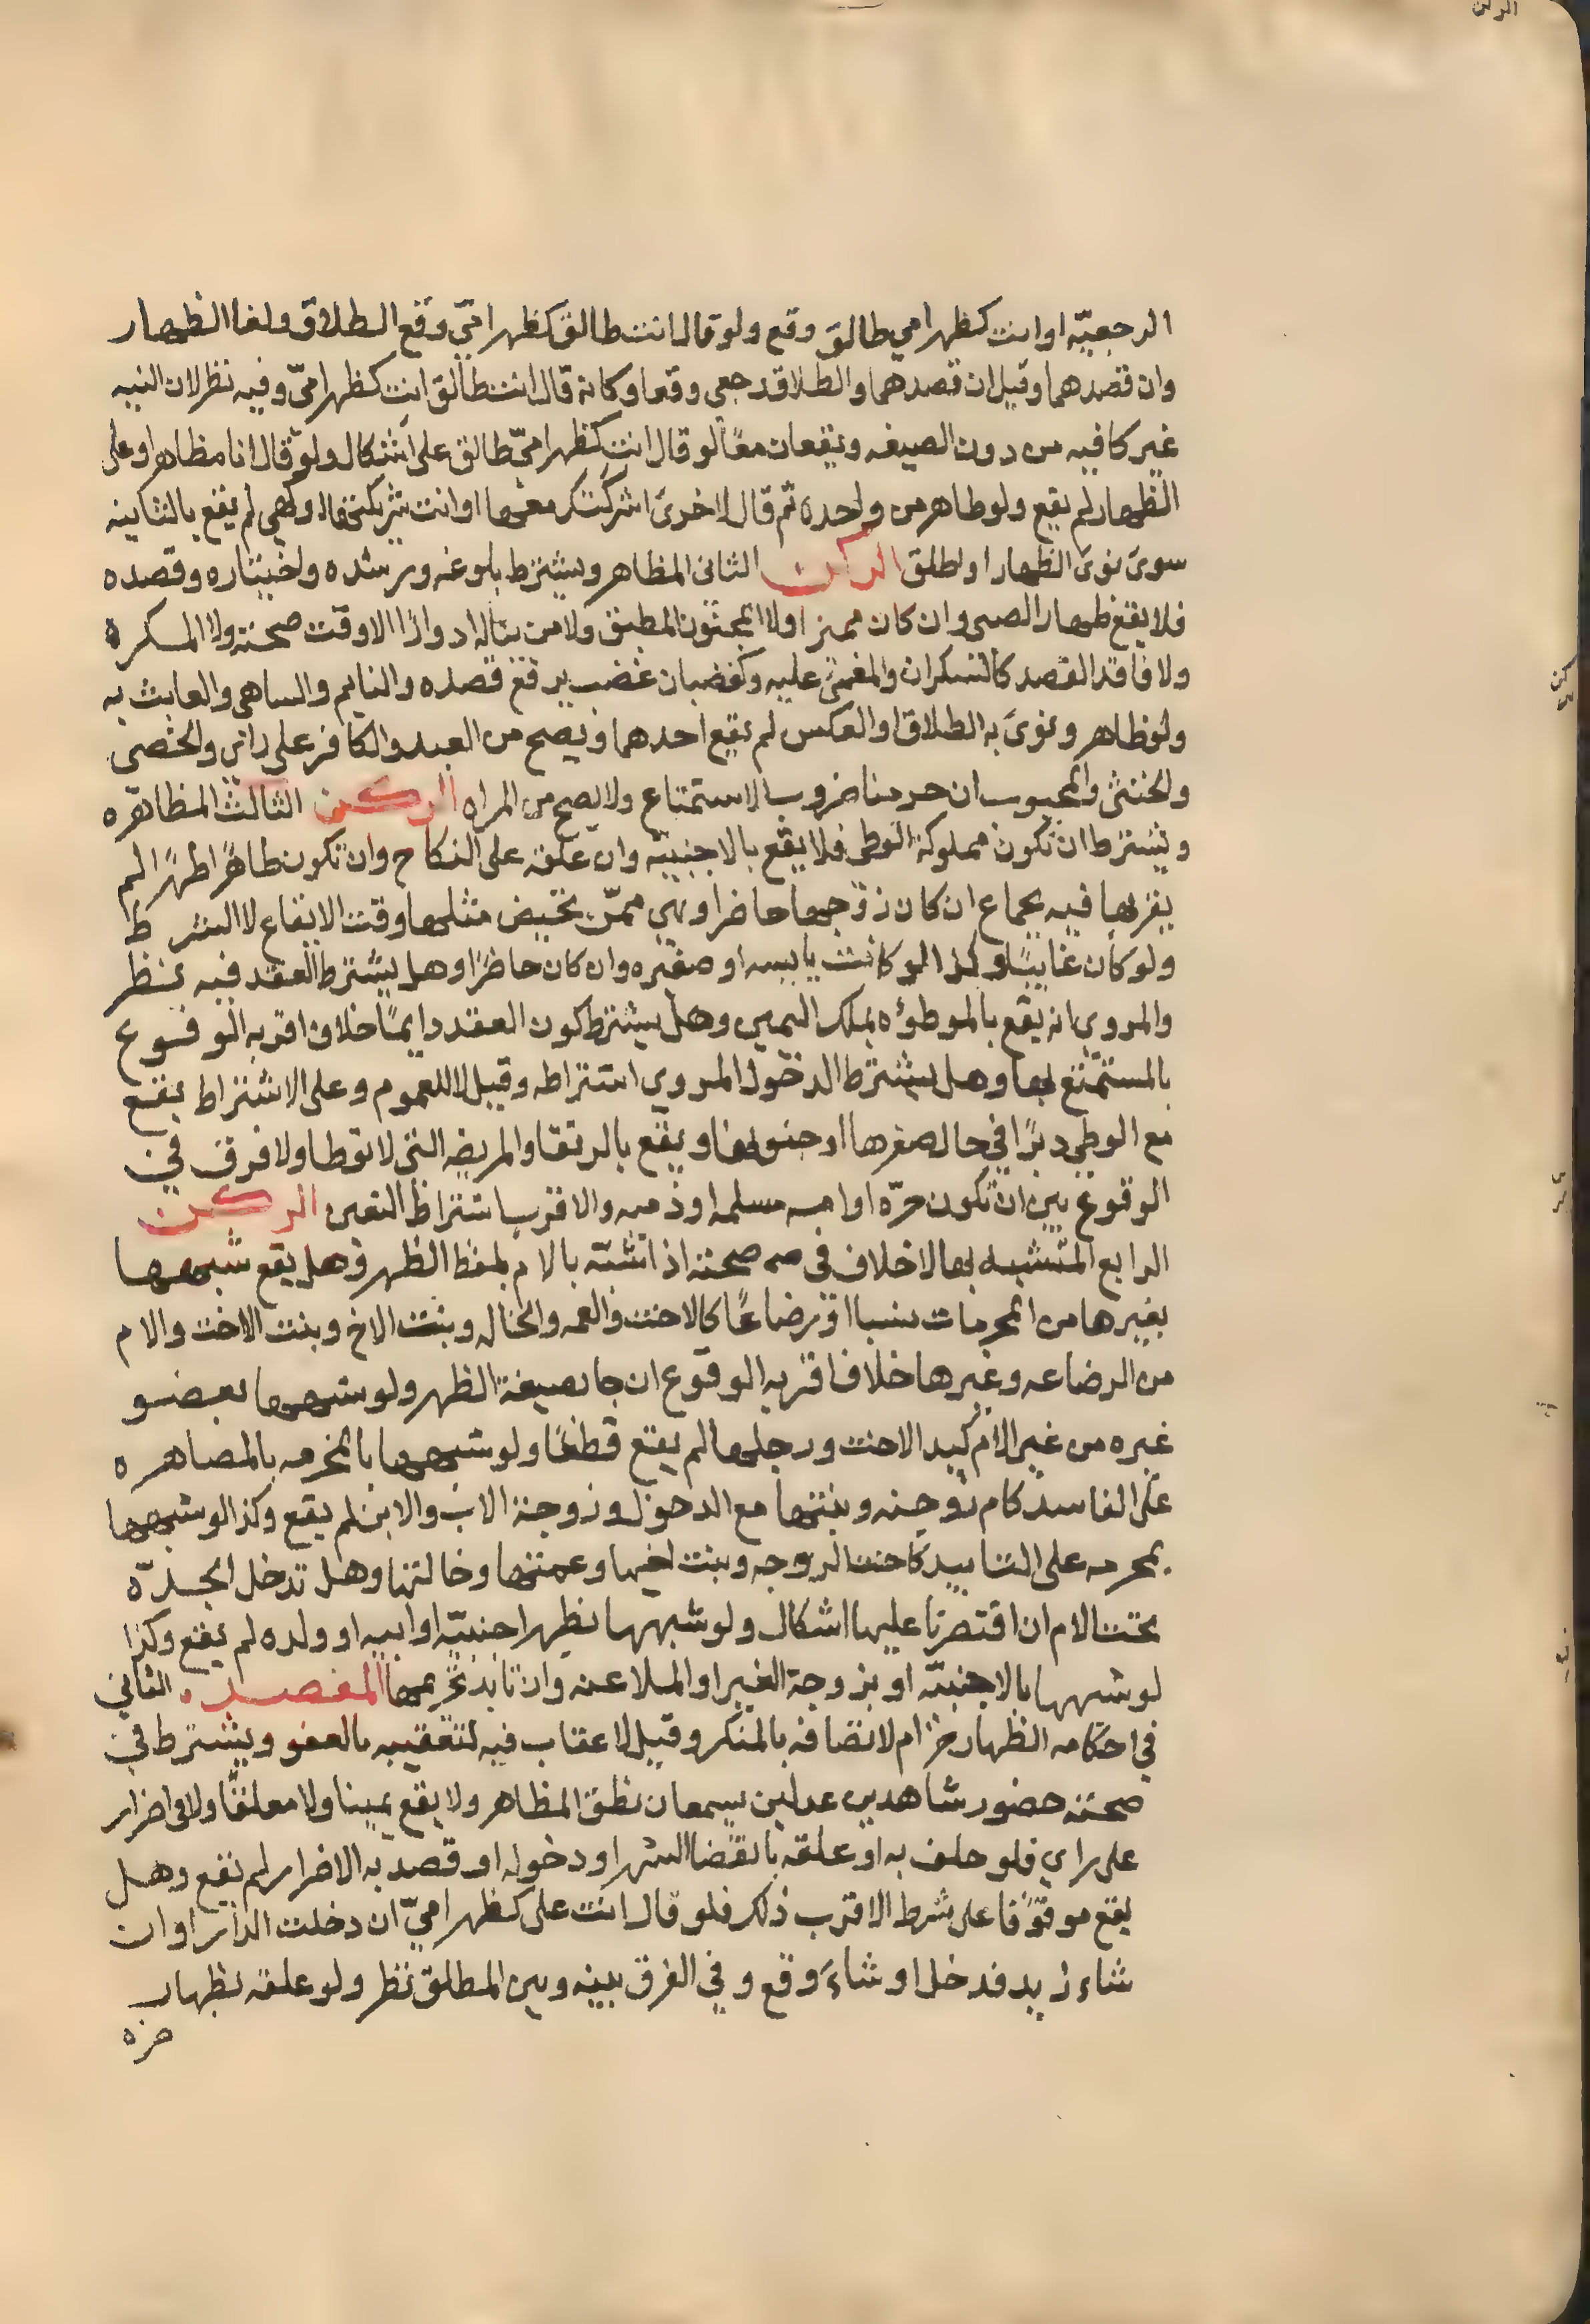 الرجعيّه او انت كظهر امي طالق وقع ولو قال انت طالق كظهر امّي وقع الطلاق ولغا الظهار
وان قصدهما وقيل ان قصدهما والطلاق رجعي وقعا وكانه قال انت طالق انت كظهر امّي وفيه نظر لان النيه
غير كافيه من دون الصيغه ويقعان معًا لو قال انت كظهر امّي طالق على اشكال ولو قال انا مظاهر او على
الظهار لم يقع ولو ظاهر من واحده ثم قال لاخرى اشركتك معها او انت شريكتها او كهي لم يقع بالثانيه
سوى نوى الظهار او اطلق الركن الثاني المظاهر ويشترط بلوغه ورشده واختياره وقصده
فلا يقع ظهار الصبي وان كان مميزا ولا المجنون المطبق ولا من يناله ادوارًا الا وقت صحته ولا المكره
ولا فاقد القصد كالسكران والمغمى عليه وكغضبان غضب يرفع قصده والنايم والساهي والعابث به
ولو ظاهر ونوى به الطلاق او العكس لم يقع احدهما ويصح من العبد والكافر على راي والخصي
والخنثى والمجبوب ان حرمنا ضروب الاستمتاع ولا يصح من المراه الركن الثالث المظاهره
ويشترط ان تكون مملوكة الوطي فلا يقع بالاجنبيّه وان علقه على النكاح وان تكون طاهرًا طهرًا لم
يقربها فيه بجماع ان كان زوجها حاضرا وهي ممّن تحيض مثلها وقت الايقاع لا الشرط
ولو كان غايبًا وكذا لو كانت يايسه او صغيره وان كان حاضرًا وهل يشترط العقد فيه نظر
والمروي انه يقع بالموطؤه بملك اليمين وهل يشترط كون العقد دايمًا خلاف اقربه الوقوع
بالمستمتع بها وهل يشترط الدخول المروي اشتراطه وقيل لا للعموم وعلى الاشتراط يقع
مع الوطي دبرًا في حال صغرها او جنونها ويقع بالرتقا والمريضه التي لا توطا ولا فرق في
الوقوع بين ان تكون حرّه او امه مسلمه او ذميه والاقرب اشتراط التعيين الركن
الرابع المشبه بها لا خلاف في صحته اذا شبّه بالام بلفظ الظهر وهل يقع شبهها
بغيرها من المحرمات نسبا او رضاعًا كالاخت والعمه والخاله وبنت الاخ وبنت الاخت والام
من الرضاعه وغيرها خلاف اقربه الوقوع ان جا بصيغة الظهر ولو شبهها بعضو
غيره من غير الام كيد الاخت ورجلها لم يقع قطعًا ولو شبهها بالمحرمه بالمصاهره
على الفاسد كام زوجته وبنتها مع الدخول وزوجة الاب والابن لم يقع وكذا لو شبهها
بمحرمه على التابيد كاخت الزوجه وبنت اخيها وعمتها وخالتها وهل تدخل الجدّه
تحت الام ان اقتصرنا عليها اشكال ولو شبهها بظهر اجنبيّه او ابيه او ولده لم يقع وكذا
لو شبهها بالاجنبيّه او بزوجة الغير او الملاعنه وان تابد تحريمها المقصد الثاني
في احكامه الظهار حرام لاتصافه بالمنكر وقيل لا عقاب فيه لتعقيبه بالعفو ويشترط في
صحته حضور شاهدين عدلين يسمعان نطق المظاهر ولا يقع يمينا ولا معلقًا ولا في اضرار
على راي فلو حلف به او علقه بانقضا الشهر او دخوله او قصد به الاضرار لم يقع وهل
يقع موقوفًا على شرط الاقرب ذلك فلو قال انت على كظهر امي ان دخلت الدار او ان
شاء زيد فدخل او شاءَ وقع وفي الفرق بينه وبين المطلق نظر ولو علقه بظهار
ضره